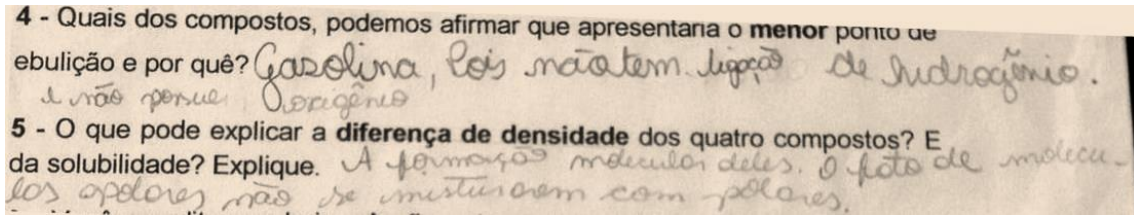 4 - Quais dos compostos, podemos afirmar que apresentaria o menor ponto de
ebulição e por quê? Gasolina, Pois não tem ligação de hidrogênio.
e não posue oxigênio
5 - O que pode explicar a diferença de densidade dos quatro compostos? E
da solubilidade? Explique. A formação molecular deles. O fato de molecu-
las apolares não se misturarem com polares.